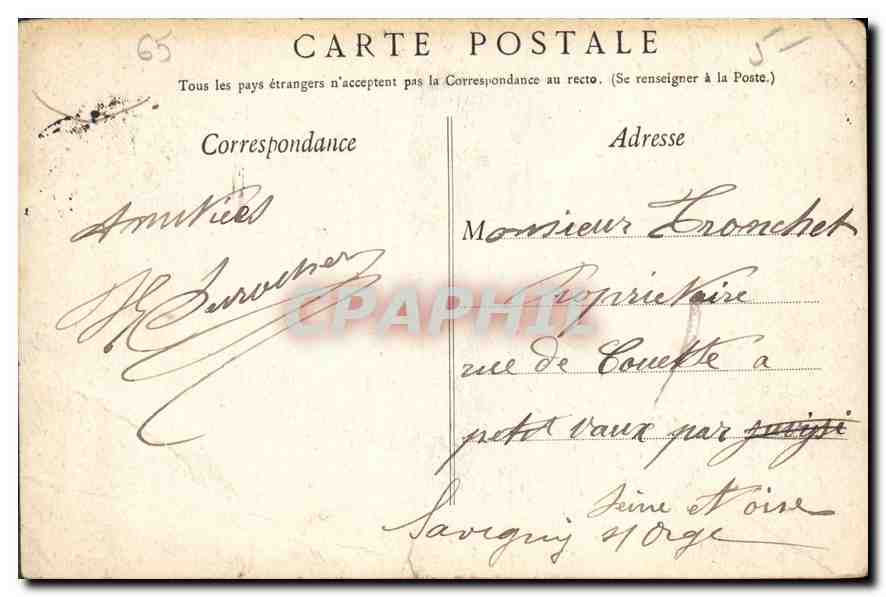 65
5-
CARTE POSTALE
Tous les pays étrangers n'acceptent pas la Correspondance au recto. (Se renseigner à la Poste.)
Correspondance
Amitiées
Durocher
CPAPHIL
Adresse
Monsieur Tronchet
Proprietaire
rue de Couette a
petit vaux par juvisi
Seine et Oise
Savigny s/ Orge